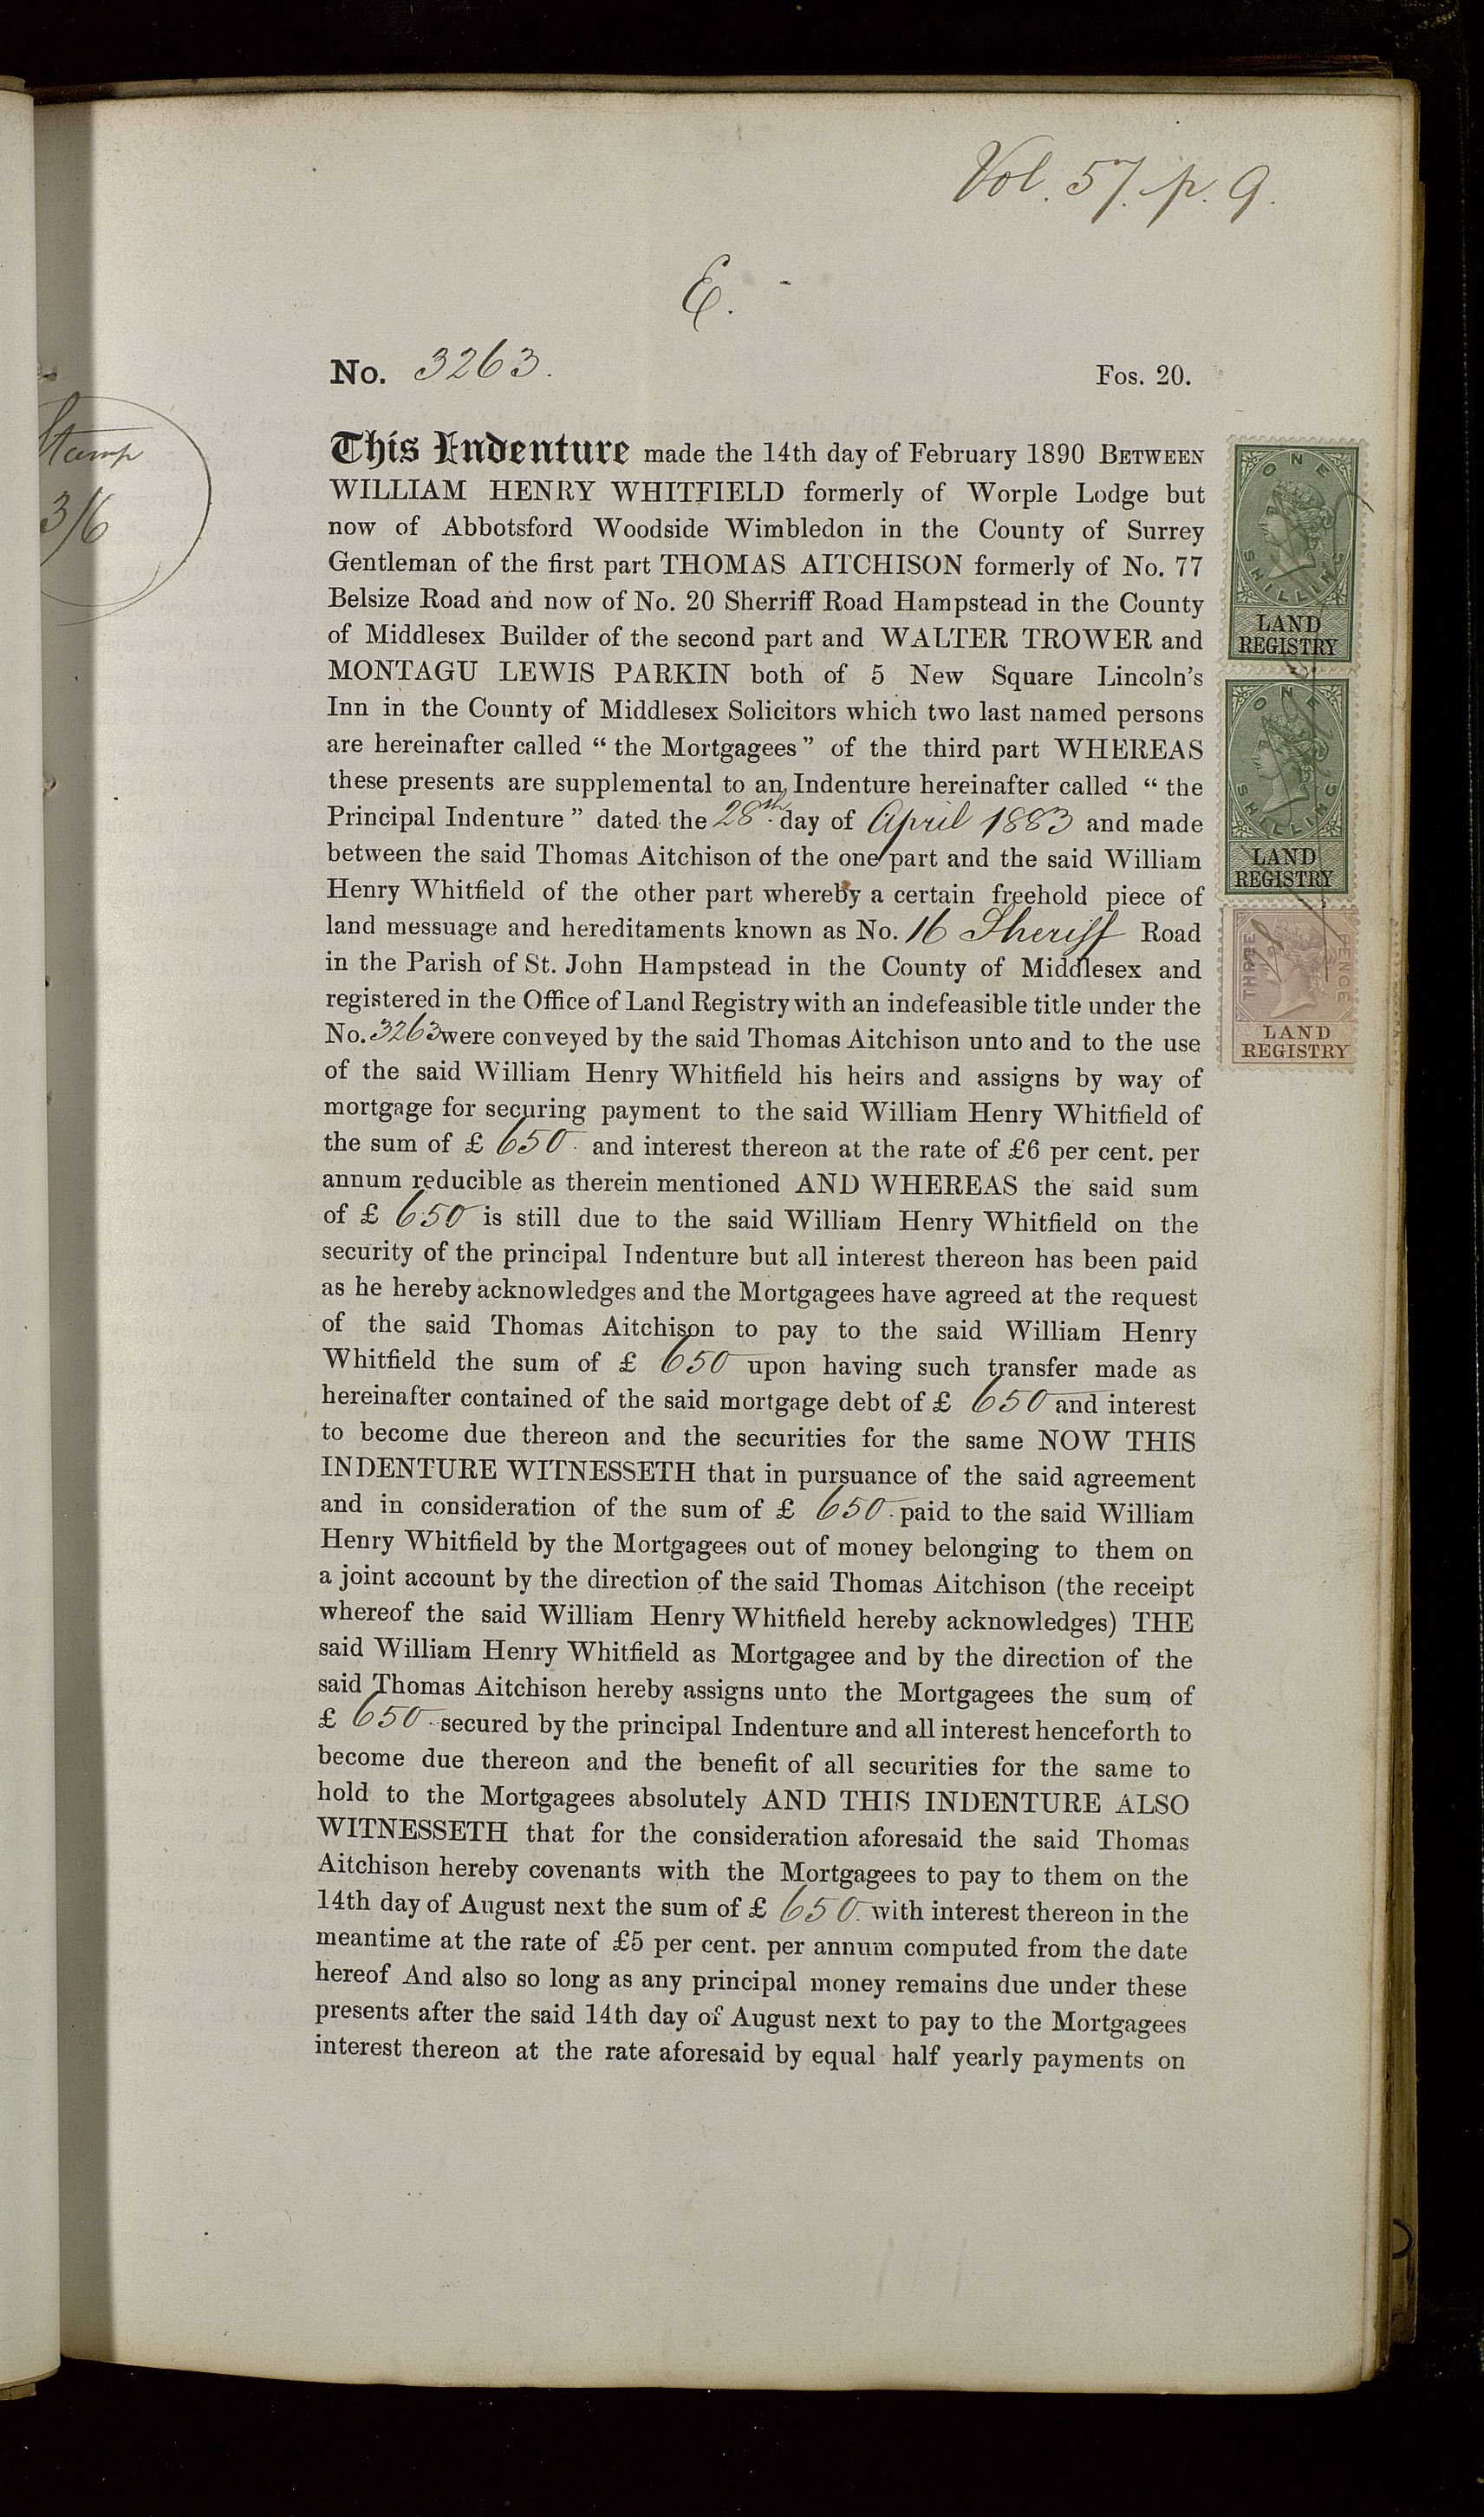 Vol. 57. p. 9.
E.
No. 3263.
Fos. 20.
Stamp
3/6
This Indenture made the 14th day of February 1890 BETWEEN
WILLIAM HENRY WHITFIELD formerly of Worple Lodge but
now of Abbotsford Woodside Wimbledon in the County of Surrey
Gentleman of the first part THOMAS AITCHISON formerly of No. 77
Belsize Road and now of No. 20 Sherriff Road Hampstead in the County
of Middlesex Builder of the second part and WALTER TROWER and
MONTAGU LEWIS PARKIN both of 5 New Square Lincoln's
Inn in the County of Middlesex Solicitors which two last named persons
are hereinafter called “ the Mortgagees ” of the third part WHEREAS
these presents are supplemental to an Indenture hereinafter called “ the
Principal Indenture ” dated the 28th day of April 1883 and made
between the said Thomas Aitchison of the one part and the said William
Henry Whitfield of the other part whereby a certain freehold piece of
land messuage and hereditaments known as No. 16 Sheriff Road
in the Parish of St. John Hampstead in the County of Middlesex and
registered in the Office of Land Registry with an indefeasible title under the
No. 3263 were conveyed by the said Thomas Aitchison unto and to the use
of the said William Henry Whitfield his heirs and assigns by way of
mortgage for securing payment to the said William Henry Whitfield of
the sum of £ 650 and interest thereon at the rate of £6 per cent. per
annum reducible as therein mentioned AND WHEREAS the said sum
of £ 650 is still due to the said William Henry Whitfield on the
security of the principal Indenture but all interest thereon has been paid
as he hereby acknowledges and the Mortgagees have agreed at the request
of the said Thomas Aitchison to pay to the said William Henry
Whitfield the sum of £ 650 upon having such transfer made as
hereinafter contained of the said mortgage debt of £ 650 and interest
to become due thereon and the securities for the same NOW THIS
INDENTURE WITNESSETH that in pursuance of the said agreement
and in consideration of the sum of £ 650 paid to the said William
Henry Whitfield by the Mortgagees out of money belonging to them on
a joint account by the direction of the said Thomas Aitchison (the receipt
whereof the said William Henry Whitfield hereby acknowledges) THE
said William Henry Whitfield as Mortgagee and by the direction of the
said Thomas Aitchison hereby assigns unto the Mortgagees the sum of
£ 650 secured by the principal Indenture and all interest henceforth to
become due thereon and the benefit of all securities for the same to
hold to the Mortgagees absolutely AND THIS INDENTURE ALSO
WITNESSETH that for the consideration aforesaid the said Thomas
Aitchison hereby covenants with the Mortgagees to pay to them on the
14th day of August next the sum of £ 650 with interest thereon in the
meantime at the rate of £5 per cent. per annum computed from the date
hereof And also so long as any principal money remains due under these
presents after the said 14th day of August next to pay to the Mortgagees
interest thereon at the rate aforesaid by equal half yearly payments on
ONE
SHILLING
LAND
REGISTRY
ONE
SHILLING
LAND
REGISTRY
THREE PENCE
LAND
REGISTRY